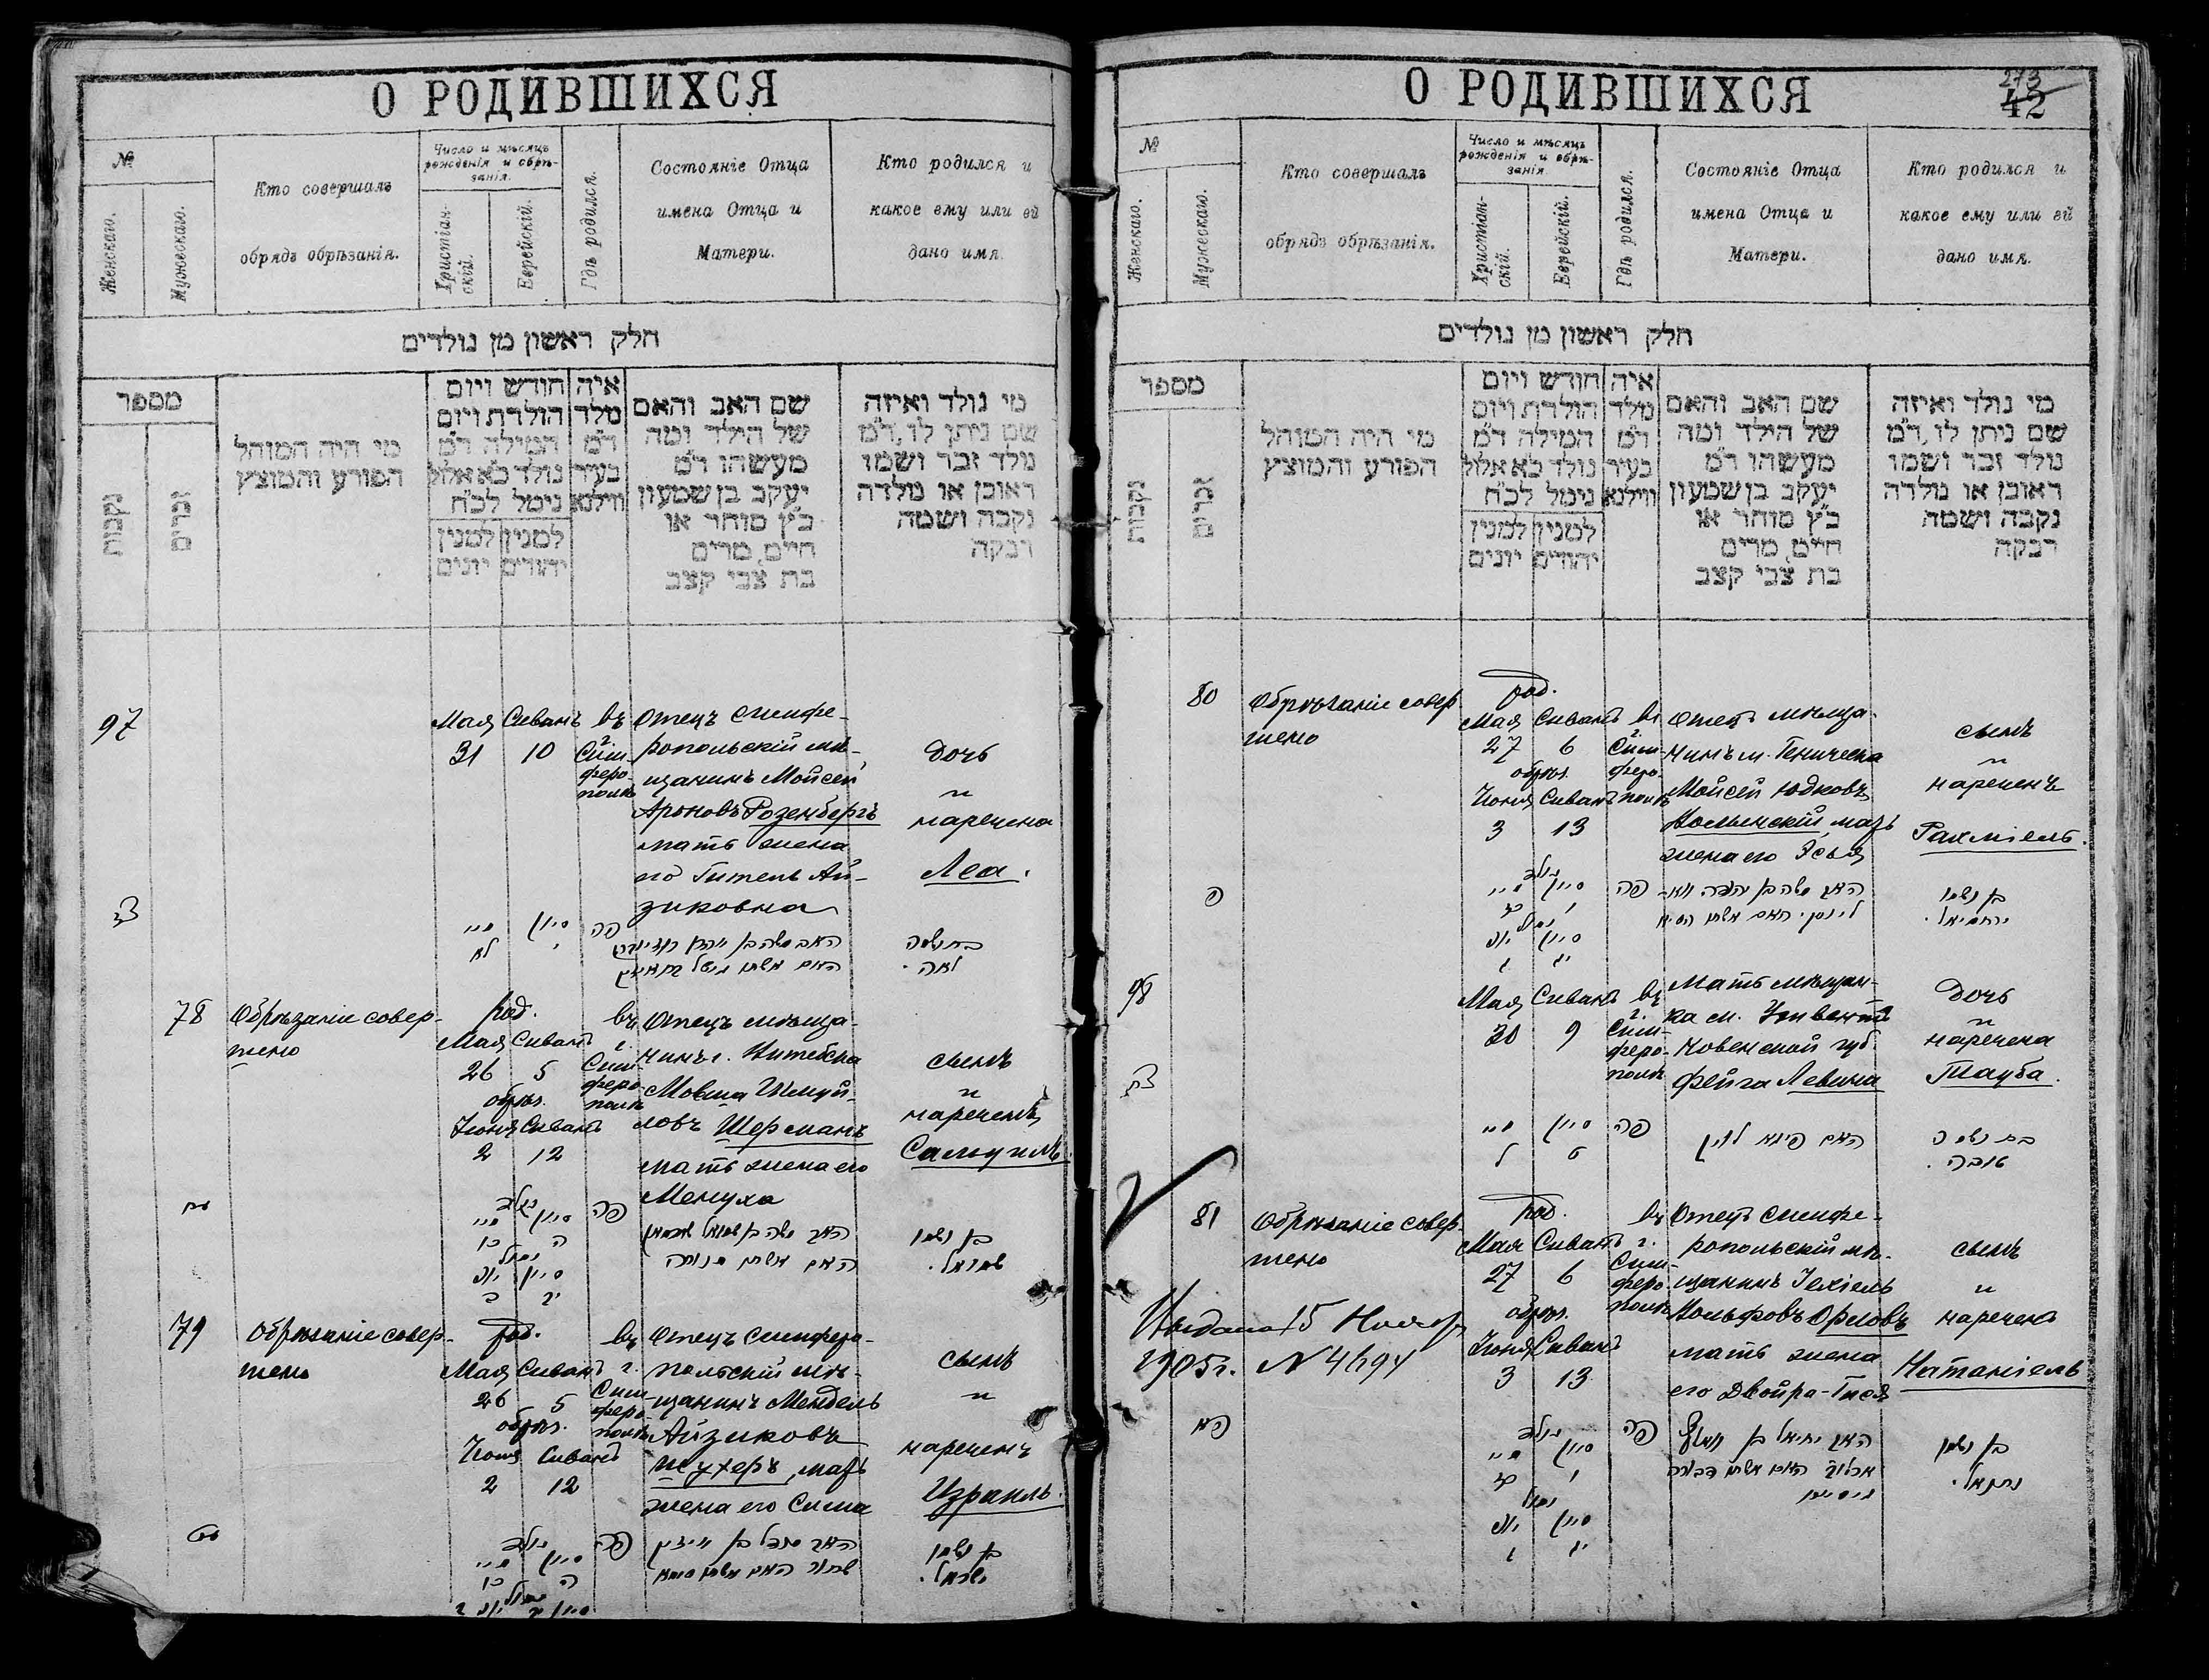 О РОДИВШИХСЯ
№
Женскаго.
Мужескаго.
Кто совершалъ
обрядъ обрѣзанія.
Число и мѣсяцъ
рожденія и обрѣ-
занія.
Христіан-
скій.
Еврейскій.
Гдѣ родился.
Состояніе Отца
имена Отца и
Матери.
Кто родился и
какое ему или ей
дано имя.
חלק ראשון מן נולדים
מספר
נקבות
זכרים
מי היה המוהל
הפורע והמוצץ
חודש ויום
הולדת ויום
המילה ד״מ
נולד כ״א אלול
נימל לכ״ח
למנין
יהודים
למנין
יונים
איה
מלד
ד״מ
בעיר
ווילנא
שם האב והאם
של הילד ומה
מעשהו ד״מ
יעקב בן שמעון
כ״ץ סוחר או
חיים, מרים
בת צבי קצב
מי נולד ואיזה
שם ניתן לו, ד״מ
נולד זכר ושמו
ראובן או נולדה
נקבה ושמה
רבקה
97
Мая Сиванъ
31 10
въ
г.
Сим-
феро-
полѣ
Отецъ симфе-
ропольскій мѣ-
щанинъ Мойсей
Ароновъ Розенбергъ
мать жена
его Гитель Ай-
зиковна
дочь
и
наречена
Леа.
סיון
י
לא
פה
בת ושמה
לאה.
78
Обрѣзаніе совер-
шено
род.
Мая Сиванъ
26 5
обрѣз.
Іюня Сиванъ
2 12
въ
г.
Сим-
феро-
полѣ
Отецъ мѣща-
нинъ г. Витебска
Мовша Шмуй-
ловъ Шерманъ
мать жена его
Менуха
сынъ
и
нареченъ
Самуилъ.
עח
נולד
סיון
ה
כו
נימול
סיון
יב
ב
פה
האם אשתו מנוחה
בן ושמו
שמואל.
79
Обрѣзаніе совер-
шено
род.
Мая Сиванъ
26 5
обрѣз.
Іюня Сиванъ
2 12
въ
г.
Сим-
феро-
полѣ
Отецъ симферо-
польскій мѣ-
щанинъ Мендель
Айзиковъ
Шухеръ, мать
жена его Сима
сынъ
и
нареченъ
Израиль.
עט
נולד
סיון
ה
כו
פה
בן ושמו
ישראל.
О РОДИВШИХСЯ
273
42
№
Женскаго.
Мужескаго.
Кто совершалъ
обрядъ обрѣзанія.
Число и мѣсяцъ
рожденія и обрѣ-
занія
Христіан-
скій.
Еврейскій.
Гдѣ родился.
Состояніе Отца
имена Отца и
Матери.
Кто родился и
какое ему или ей
дано имя.
חלק ראשון מן נולדים
מספר
נקבות
זכרים
מי היה המוהל
הפורע והמוצץ
חודש ויום
הולדת ויום
המילה ד״מ
נולד כ״א אלול
נימל לכ״ח
למנין
יהודים
למנין
יונים
איה
מלד
ד״מ
בעיר
ווילנא
שם האב והאם
של הילד ומה
מעשהו ד״מ
יעקב בן שמעון
כ״ץ סוחר או
חיים, מרים
בת צבי קצב
מי נולד ואיזה
שם ניתן לו, ד״מ
נולד זכר ושמו
ראובן או נולדה
נקבה ושמה
רבקה
80
Обрѣзаніе совер-
шено
род.
Мая Сиванъ
27 6
обрѣз.
Іюня Сиванъ
3 13
въ
г.
Сим-
феро-
полѣ
Отецъ мѣща-
нинъ м. Геническа
Мойсей Юдковъ
Волынскій, мать
жена его Эсья
сынъ
и
нареченъ
Рахміель.
פ
נולד
סיון
ו
כז
נימול
סיון
יג
ג
פה
בן ושמו
ירחמיאל.
98
Мая Сиванъ
30 9
въ
г.
Сим-
феро-
полѣ
Мать мѣщан-
ка м.
Ковенской губ.
Фейга Левина
дочь
и
наречена
Тауба.
צח
סיון
ט
ל
פה
האם פייגא לוין
בת ושמה
טובה.
81
Обрѣзаніе совер-
шено
род.
Мая Сиванъ
27 6
обрѣз.
Іюня Сиванъ
3 13
въ
г.
Сим-
феро-
полѣ
Отецъ симфе-
ропольскій мѣ-
щанинъ Іехіель
Вольфовъ Орловъ
мать жена
его Двойра-Гися
сынъ
и
нареченъ
Натаніель
Выдана 15 Ноября
1905 г. № 4694
פא
נולד
סיון
ו
כז
נימול
סיון
יג
ג
פה
האב יחיאל בן וואלף
ארלוב האם אשתו דבורה
בן ושמו
נתנאל.